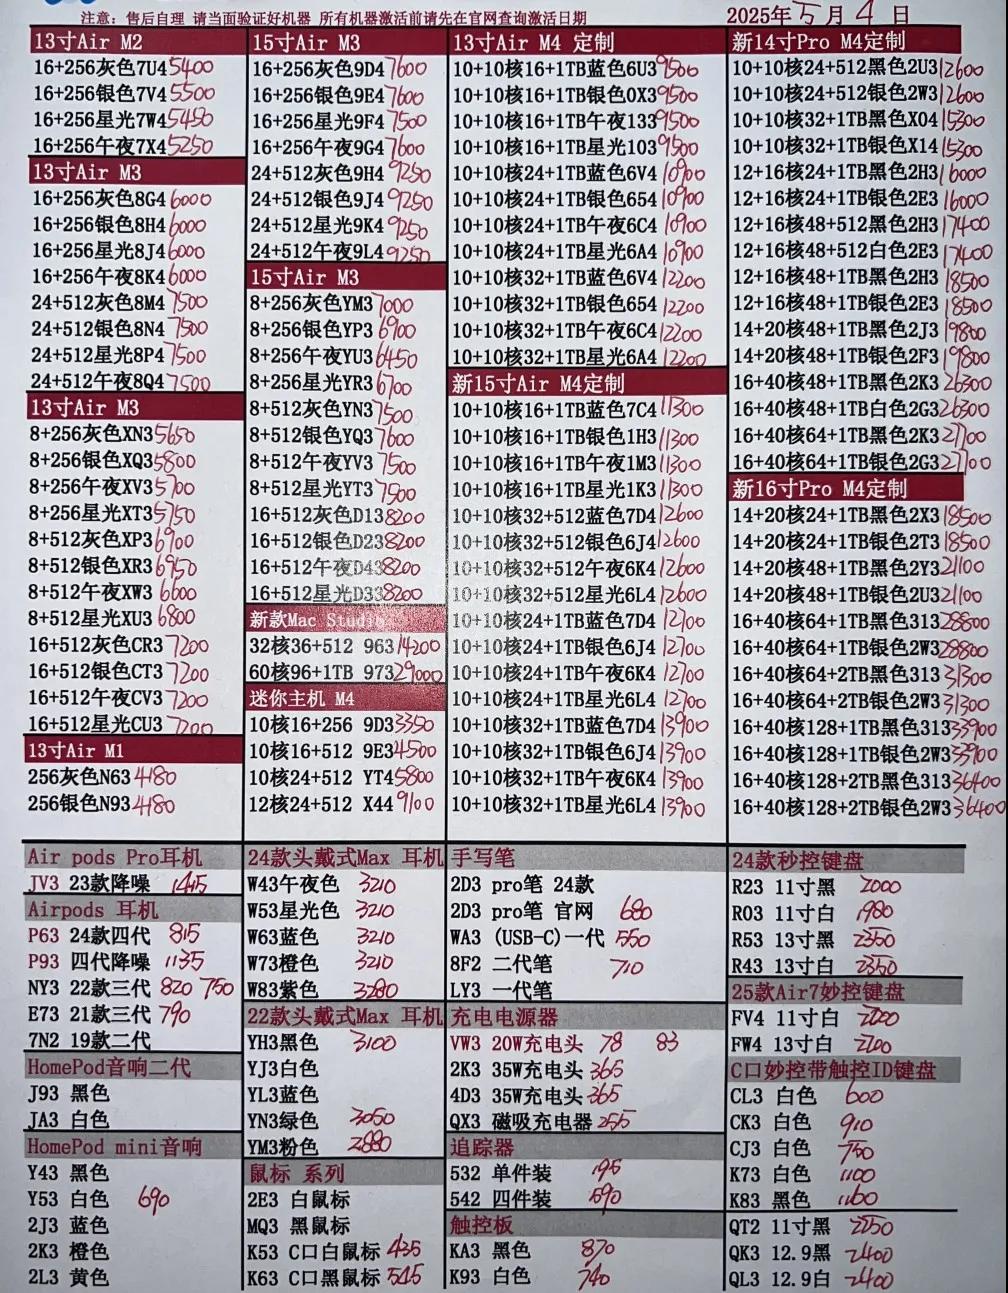 注意：售后自理 请当面验证好机器 所有机器激活前请先在官网查询激活日期
2025年5月4日
13寸Air M2
16+256灰色7U4 5400
16+256银色7V4 5500
16+256星光7W4 5450
16+256午夜7X4 5250
13寸Air M3
16+256灰色8G4 6000
16+256银色8H4 6000
16+256星光8J4 6000
16+256午夜8K4 6000
24+512灰色8M4 7500
24+512银色8N4 7500
24+512星光8P4 7500
24+512午夜8Q4 7500
13寸Air M3
8+256灰色XN3 5650
8+256银色XQ3 5800
8+256午夜XV3 5700
8+256星光XT3 5750
8+512灰色XP3 6900
8+512银色XR3 6950
8+512午夜XW3 6600
8+512星光XU3 6800
16+512灰色CR3 7200
16+512银色CT3 7200
16+512午夜CV3 7200
16+512星光CU3 7200
13寸Air M1
256灰色N63 4180
256银色N93 4180
15寸Air M3
16+256灰色9D4 7600
16+256银色9E4 7600
16+256星光9F4 7500
16+256午夜9G4 7600
24+512灰色9H4 9250
24+512银色9J4 9250
24+512星光9K4 9250
24+512午夜9L4 9250
15寸Air M3
8+256灰色YM3 7000
8+256银色YP3 6900
8+256午夜YU3 6450
8+256星光YR3 6700
8+512灰色YN3 7500
8+512银色YQ3 7600
8+512午夜YV3 7500
8+512星光YT3 7500
16+512灰色D13 8200
16+512银色D23 8200
16+512午夜D43 8200
16+512星光D33 8200
新款Mac Studio
32核36+512 963 14200
60核96+1TB 973 29000
迷你主机 M4
10核16+256 9D3 3350
10核16+512 9E3 4500
10核24+512 YT4 5800
12核24+512 X44 9100
13寸Air M4 定制
10+10核16+1TB蓝色6U3 9500
10+10核16+1TB银色0X3 9500
10+10核16+1TB午夜133 9500
10+10核16+1TB星光103 9500
10+10核24+1TB蓝色6V4 10900
10+10核24+1TB银色654 10900
10+10核24+1TB午夜6C4 10900
10+10核24+1TB星光6A4 10900
10+10核32+1TB蓝色6V4 12200
10+10核32+1TB银色654 12200
10+10核32+1TB午夜6C4 12200
10+10核32+1TB星光6A4 12200
新15寸Air M4定制
10+10核16+1TB蓝色7C4 11300
10+10核16+1TB银色1H3 11300
10+10核16+1TB午夜1M3 11300
10+10核16+1TB星光1K3 11300
10+10核32+512蓝色7D4 12600
10+10核32+512银色6J4 12600
10+10核32+512午夜6K4 12600
10+10核32+512星光6L4 12600
10+10核24+1TB蓝色7D4 12700
10+10核24+1TB银色6J4 12700
10+10核24+1TB午夜6K4 12700
10+10核24+1TB星光6L4 12700
10+10核32+1TB蓝色7D4 13900
10+10核32+1TB银色6J4 13900
10+10核32+1TB午夜6K4 13900
10+10核32+1TB星光6L4 13900
新14寸Pro M4定制
10+10核24+512黑色2U3 12600
10+10核24+512银色2W3 12600
10+10核32+1TB黑色X04 15300
10+10核32+1TB银色X14 15300
12+16核24+1TB黑色2H3 16000
12+16核24+1TB银色2E3 16000
12+16核48+512黑色2H3 17400
12+16核48+512白色2E3 17400
12+16核48+1TB黑色2H3 18500
12+16核48+1TB银色2E3 18500
14+20核48+1TB黑色2J3 19800
14+20核48+1TB银色2F3 19800
16+40核48+1TB黑色2K3 26300
16+40核48+1TB白色2G3 26300
16+40核64+1TB黑色2K3 27700
16+40核64+1TB银色2G3 27700
新16寸Pro M4定制
14+20核24+1TB黑色2X3 18500
14+20核24+1TB银色2T3 18500
14+20核48+1TB黑色2Y3 21100
14+20核48+1TB银色2U3 21100
16+40核64+1TB黑色313 28800
16+40核64+1TB银色2W3 28800
16+40核64+2TB黑色313 31300
16+40核64+2TB银色2W3 31300
16+40核128+1TB黑色313 33900
16+40核128+1TB银色2W3 33900
16+40核128+2TB黑色313 36400
16+40核128+2TB银色2W3 36400
Air pods Pro耳机
JV3 23款降噪 1445
Airpods 耳机
P63 24款四代 815
P93 四代降噪 1135
NY3 22款三代 820 750
E73 21款三代 790
7N2 19款二代
HomePod音响二代
J93 黑色
JA3 白色
HomePod mini音响
Y43 黑色
Y53 白色 690
2J3 蓝色
2K3 橙色
2L3 黄色
24款头戴式Max 耳机
W43午夜色 3210
W53星光色 3210
W63蓝色 3210
W73橙色 3210
W83紫色 3280
22款头戴式Max 耳机
YH3黑色 3100
YJ3白色
YL3蓝色
YN3绿色 3050
YM3粉色 2880
鼠标 系列
2E3 白鼠标
MQ3 黑鼠标
K53 C口白鼠标 435
K63 C口黑鼠标 545
手写笔
2D3 pro笔 24款
2D3 pro笔 官网 680
WA3 (USB-C)一代 550
8F2 二代笔 710
LY3 一代笔
充电电源器
VW3 20W充电头 78 83
2K3 35W充电头 365
4D3 35W充电头 365
QX3 磁吸充电器 255
追踪器
532 单件装 195
542 四件装 590
触控板
KA3 黑色 870
K93 白色 740
24款秒控键盘
R23 11寸黑 2000
R03 11寸白 1980
R53 13寸黑 2350
R43 13寸白 2350
25款Air7妙控键盘
FV4 11寸白 2200
FW4 13寸白 2200
C口妙控带触控ID键盘
CL3 白色 600
CK3 白色 910
CJ3 白色 750
K73 白色 1100
K83 黑色 1160
QT2 11寸黑 2250
QK3 12.9黑 2400
QL3 12.9白 2400